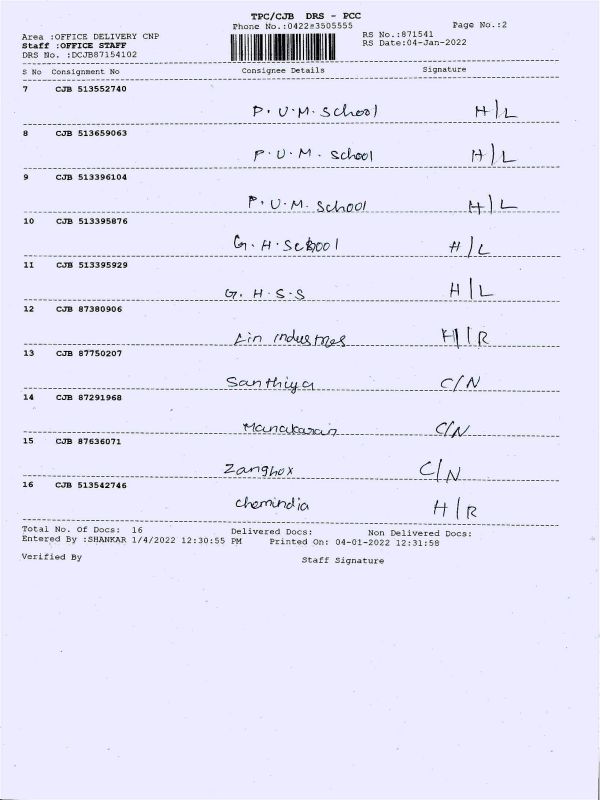 TPC/CJB DRS - PCC
Phone No.:0422#3505555 Page No.:2
Area :OFFICE DELIVERY CNP RS No.:871541
Staff :OFFICE STAFF RS Date:04-Jan-2022
DRS No. :DCJB87154102
S No Consignment No Consignee Details Signature
7 CJB 513552740
P. U. M. School H/L
8 CJB 513659063
P. U. M. School H/L
9 CJB 513396104
P. U. M. School H/L
10 CJB 513395876
G. H. School H/L
11 CJB 513395929
G. H. S. S H/L
12 CJB 87380906
Lin industries H/R
13 CJB 87750207
Santhiya C/N
14 CJB 87291968
Manakaran C/N
15 CJB 87636071
Zanghox C/N
16 CJB 513542746
Chemindia H/R
Total No. Of Docs: 16 Delivered Docs: Non Delivered Docs:
Entered By :SHANKAR 1/4/2022 12:30:55 PM Printed On: 04-01-2022 12:31:58
Verified By Staff Signature